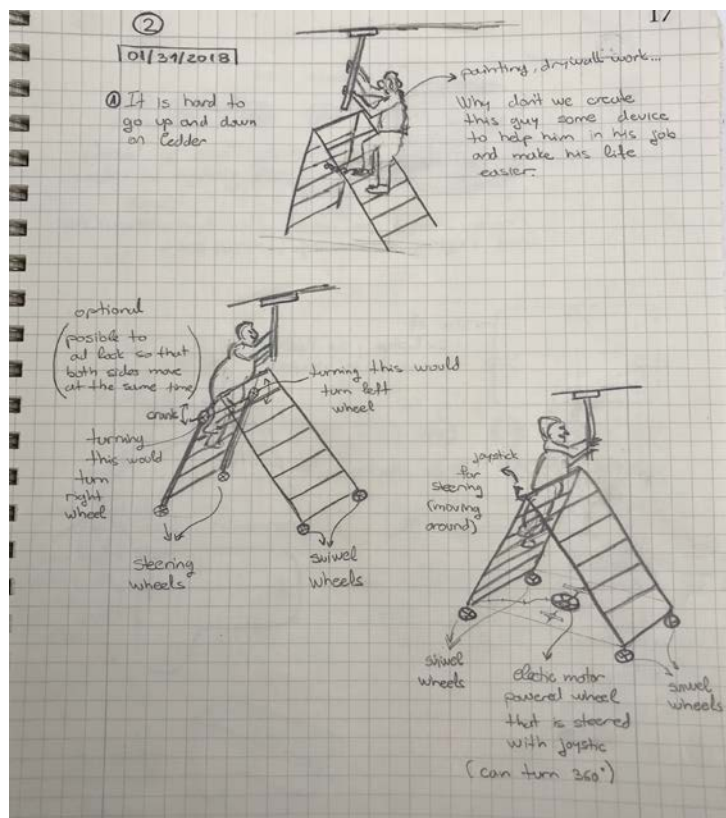 17
2
01/31/2018
1 It is hard to
go up and down
on ledder
painting, drywall work...
Why don't we create
this guy some device
to help him in his job
and make his life
easier.
optional
(posible to
ad lock so that
both sides move
at the same time)
crank
turning
this would
turn
right
wheel
turning this would
turn left
wheel
steering
wheels
swiwel
wheels
joystick
for
steering
(moving
around)
swiwel
wheels
electic motor
powered wheel
that is steered
with joystic
(can turn 360°)
swiwel
wheels